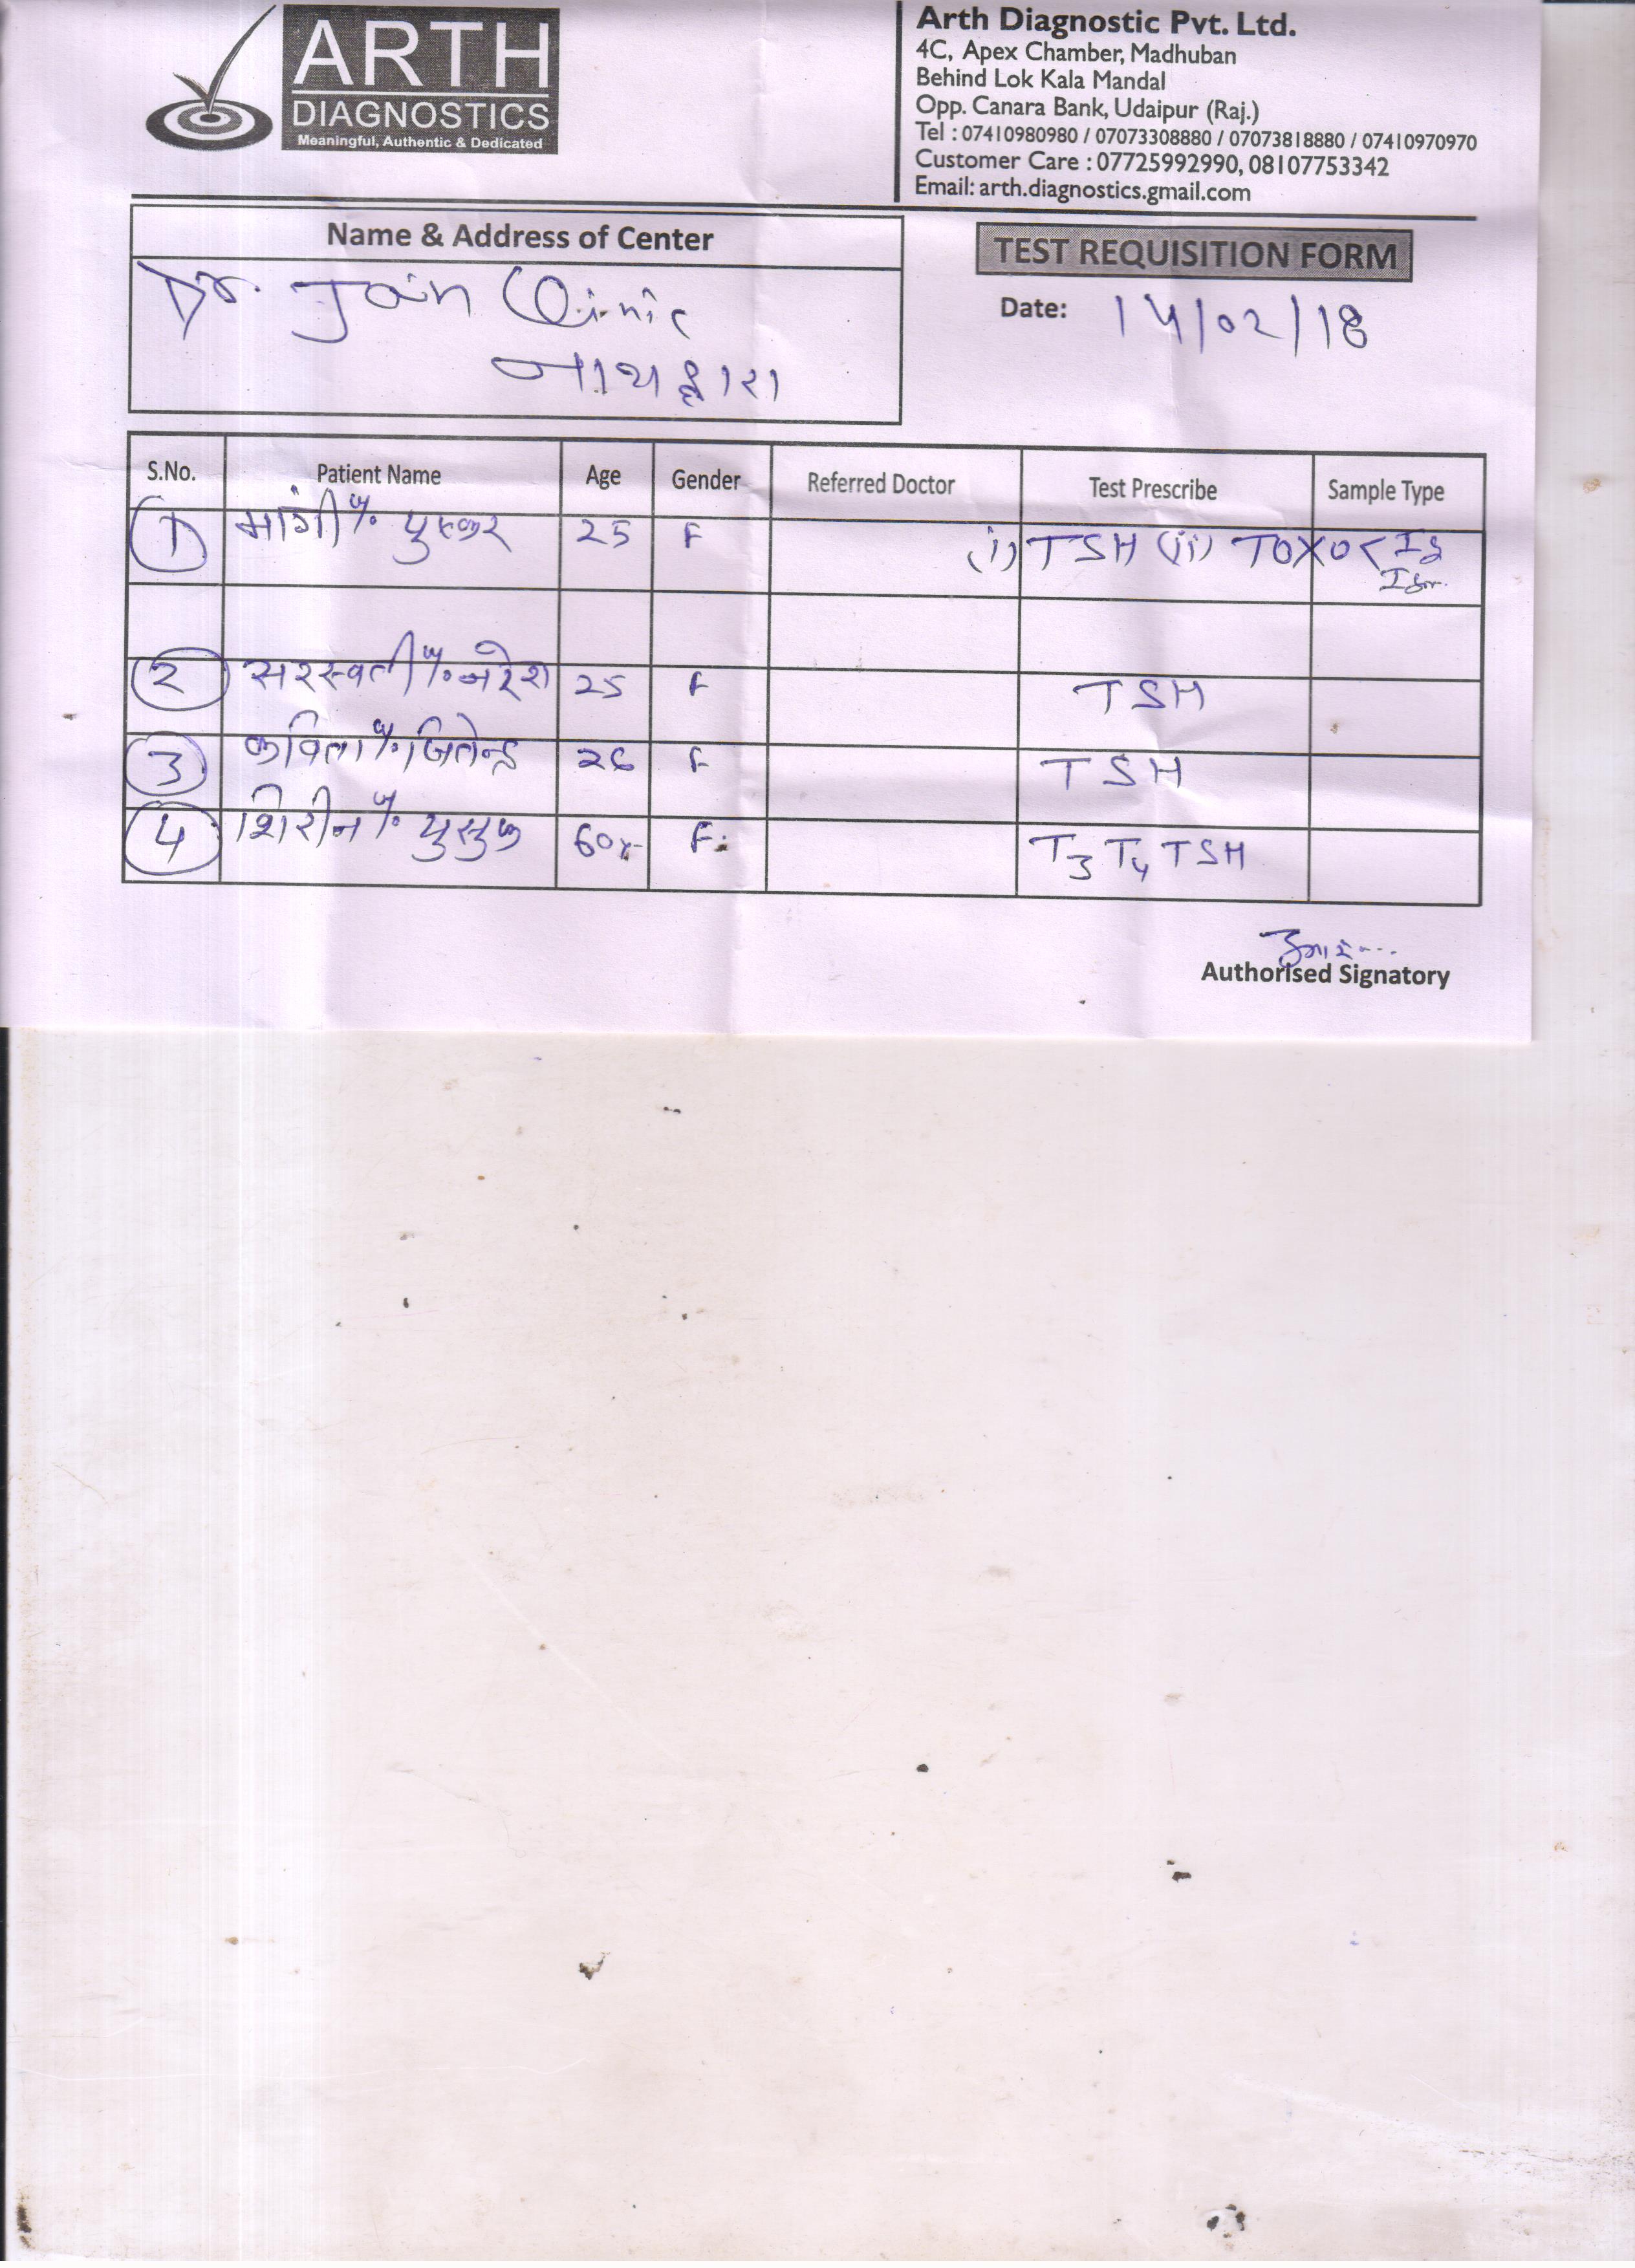 ARTH
DIAGNOSTICS
Meaningful, Authentic & Dedicated
Arth Diagnostic Pvt. Ltd.
4C, Apex Chamber, Madhuban
Behind Lok Kala Mandal
Opp. Canara Bank, Udaipur (Raj.)
Tel : 07410980980 / 07073308880 / 07073818880 / 07410970970
Customer Care : 07725992990, 08107753342
Email: arth.diagnostics.gmail.com
Name & Address of Center
Dr. Jain Clinic
नाथद्वारा
TEST REQUISITION FORM
Date: 14/02/18
S.No. Patient Name Age Gender Referred Doctor Test Prescribe Sample Type
1 मांगी w/o पुष्कर 25 F (i) TSH (ii) TOXO < Ig
Igm
2 सरस्वती w/o नरेश 25 F TSH
3 कविता w/o जितेन्द्र 26 F TSH
4 शिरीन w/o युसुफ 60 F T3 T4 TSH
Authorised Signatory